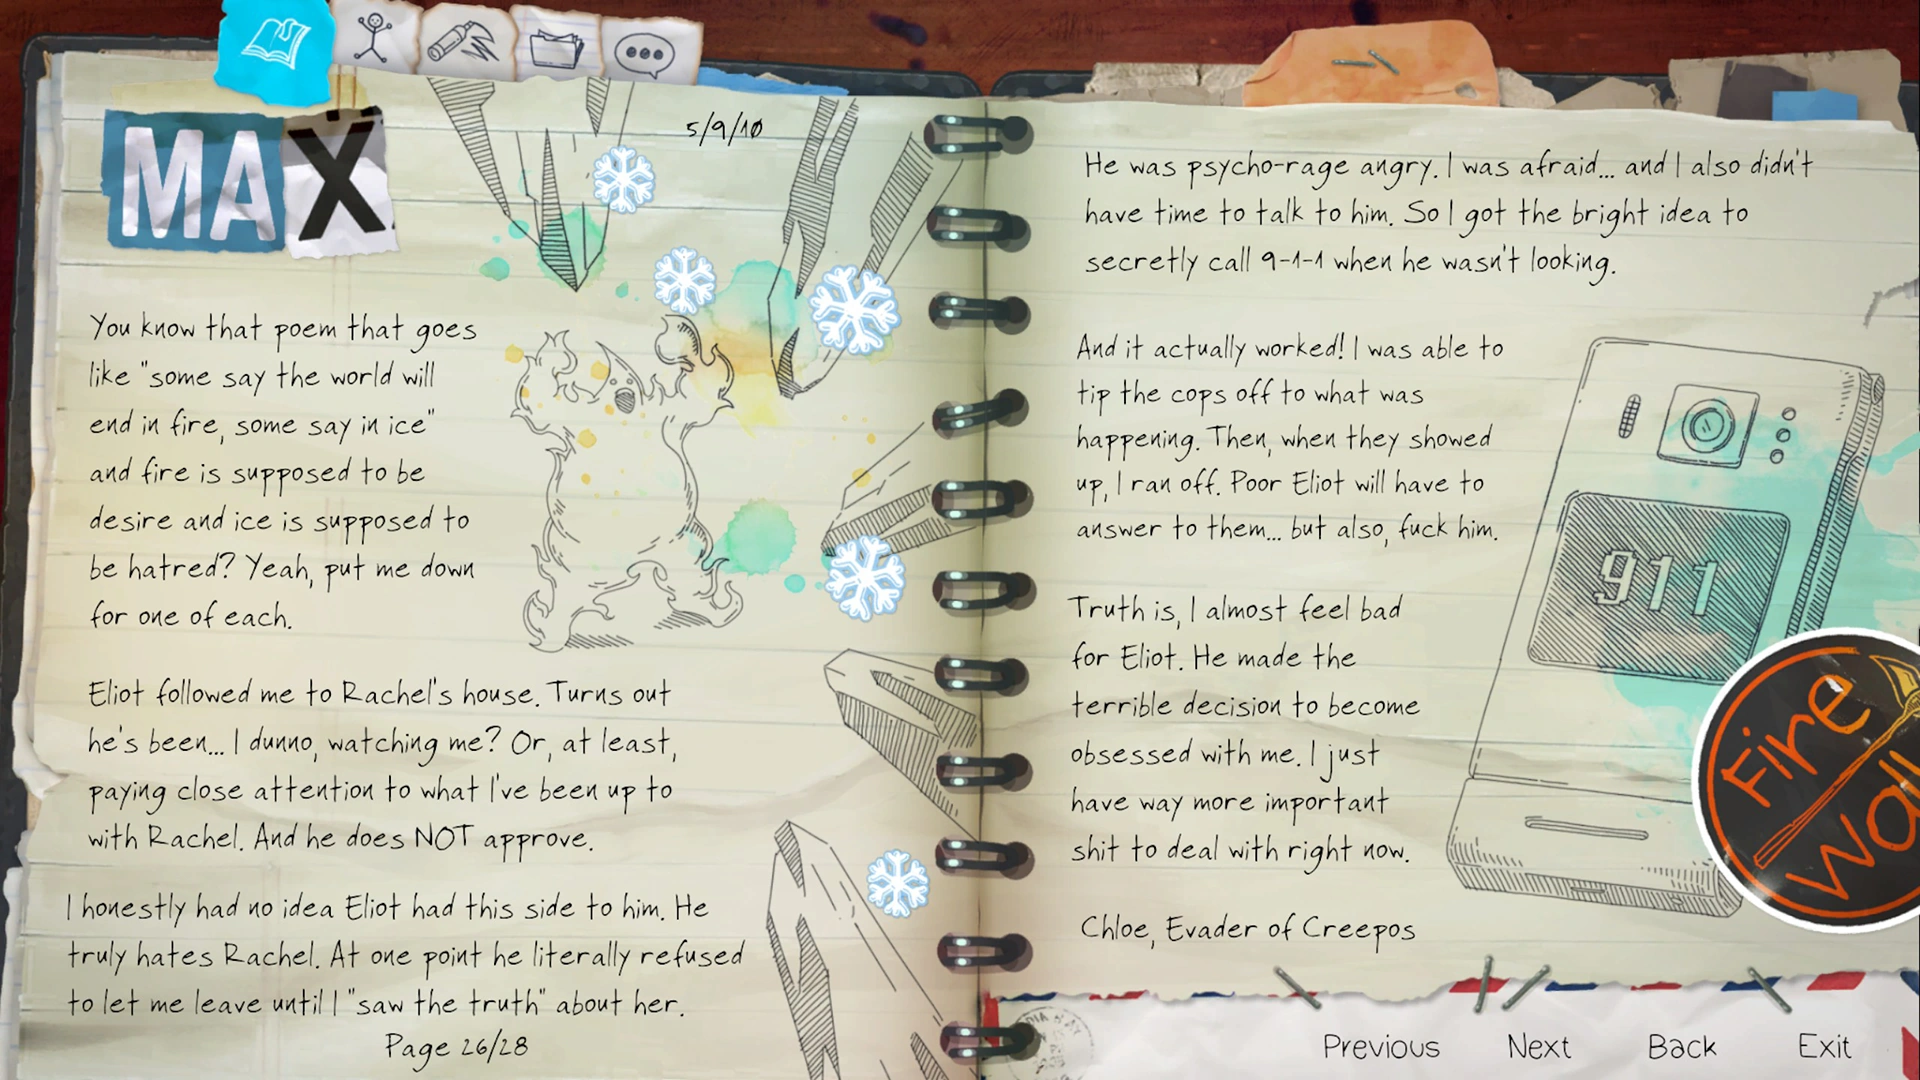 MAX
5/9/10
You know that poem that goes
like "some say the world will
end in fire, some say in ice"
and fire is supposed to be
desire and ice is supposed to
be hatred? Yeah, put me down
for one of each.
Eliot followed me to Rachel's house. Turns out
he's been... I dunno, watching me? Or, at least,
paying close attention to what I've been up to
with Rachel. And he does NOT approve.
I honestly had no idea Eliot had this side to him. He
truly hates Rachel. At one point he literally refused
to let me leave until I "saw the truth" about her.
Page 26/28
He was psycho-rage angry. I was afraid... and I also didn't
have time to talk to him. So I got the bright idea to
secretly call 9-1-1 when he wasn't looking.
And it actually worked! I was able to
tip the cops off to what was
happening. Then, when they showed
up, I ran off. Poor Eliot will have to
answer to them... but also, fuck him.
Truth is, I almost feel bad
for Eliot. He made the
terrible decision to become
obsessed with me. I just
have way more important
shit to deal with right now.
Chloe, Evader of Creepos
911
Fire
Previous Next Back Exit